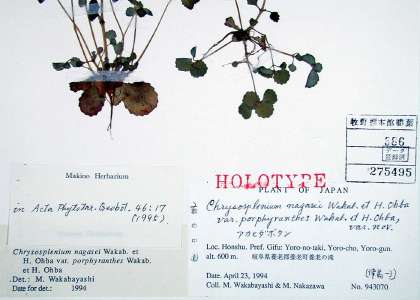 Makino Herbarium
in Acta Phytotax. Geobot. 46: 17
(1995)
Chrysosplenium nagasei Wakab. et
H. Ohba var. porphyranthes Wakab.
et H. Ohba
Det.: M. Wakabayashi
Date for det.: 1994
HOLOTYPE
PLANT OF JAPAN
Chrysosplenium nagasei Wakab. et H. Ohba
var. porphyranthes Wakab. et H. Ohba,
var. nov.
アカヒダボタン
Loc. Honshu. Pref. Gifu: Yoro-no-taki, Yoro-cho, Yoro-gun.
alt. 600 m. 岐阜県養老郡養老町養老の滝
Date: April 23, 1994
Coll. M. Wakabayashi & M. Nakazawa No. 943070
牧野標本館蔵
データ
登録済
275495